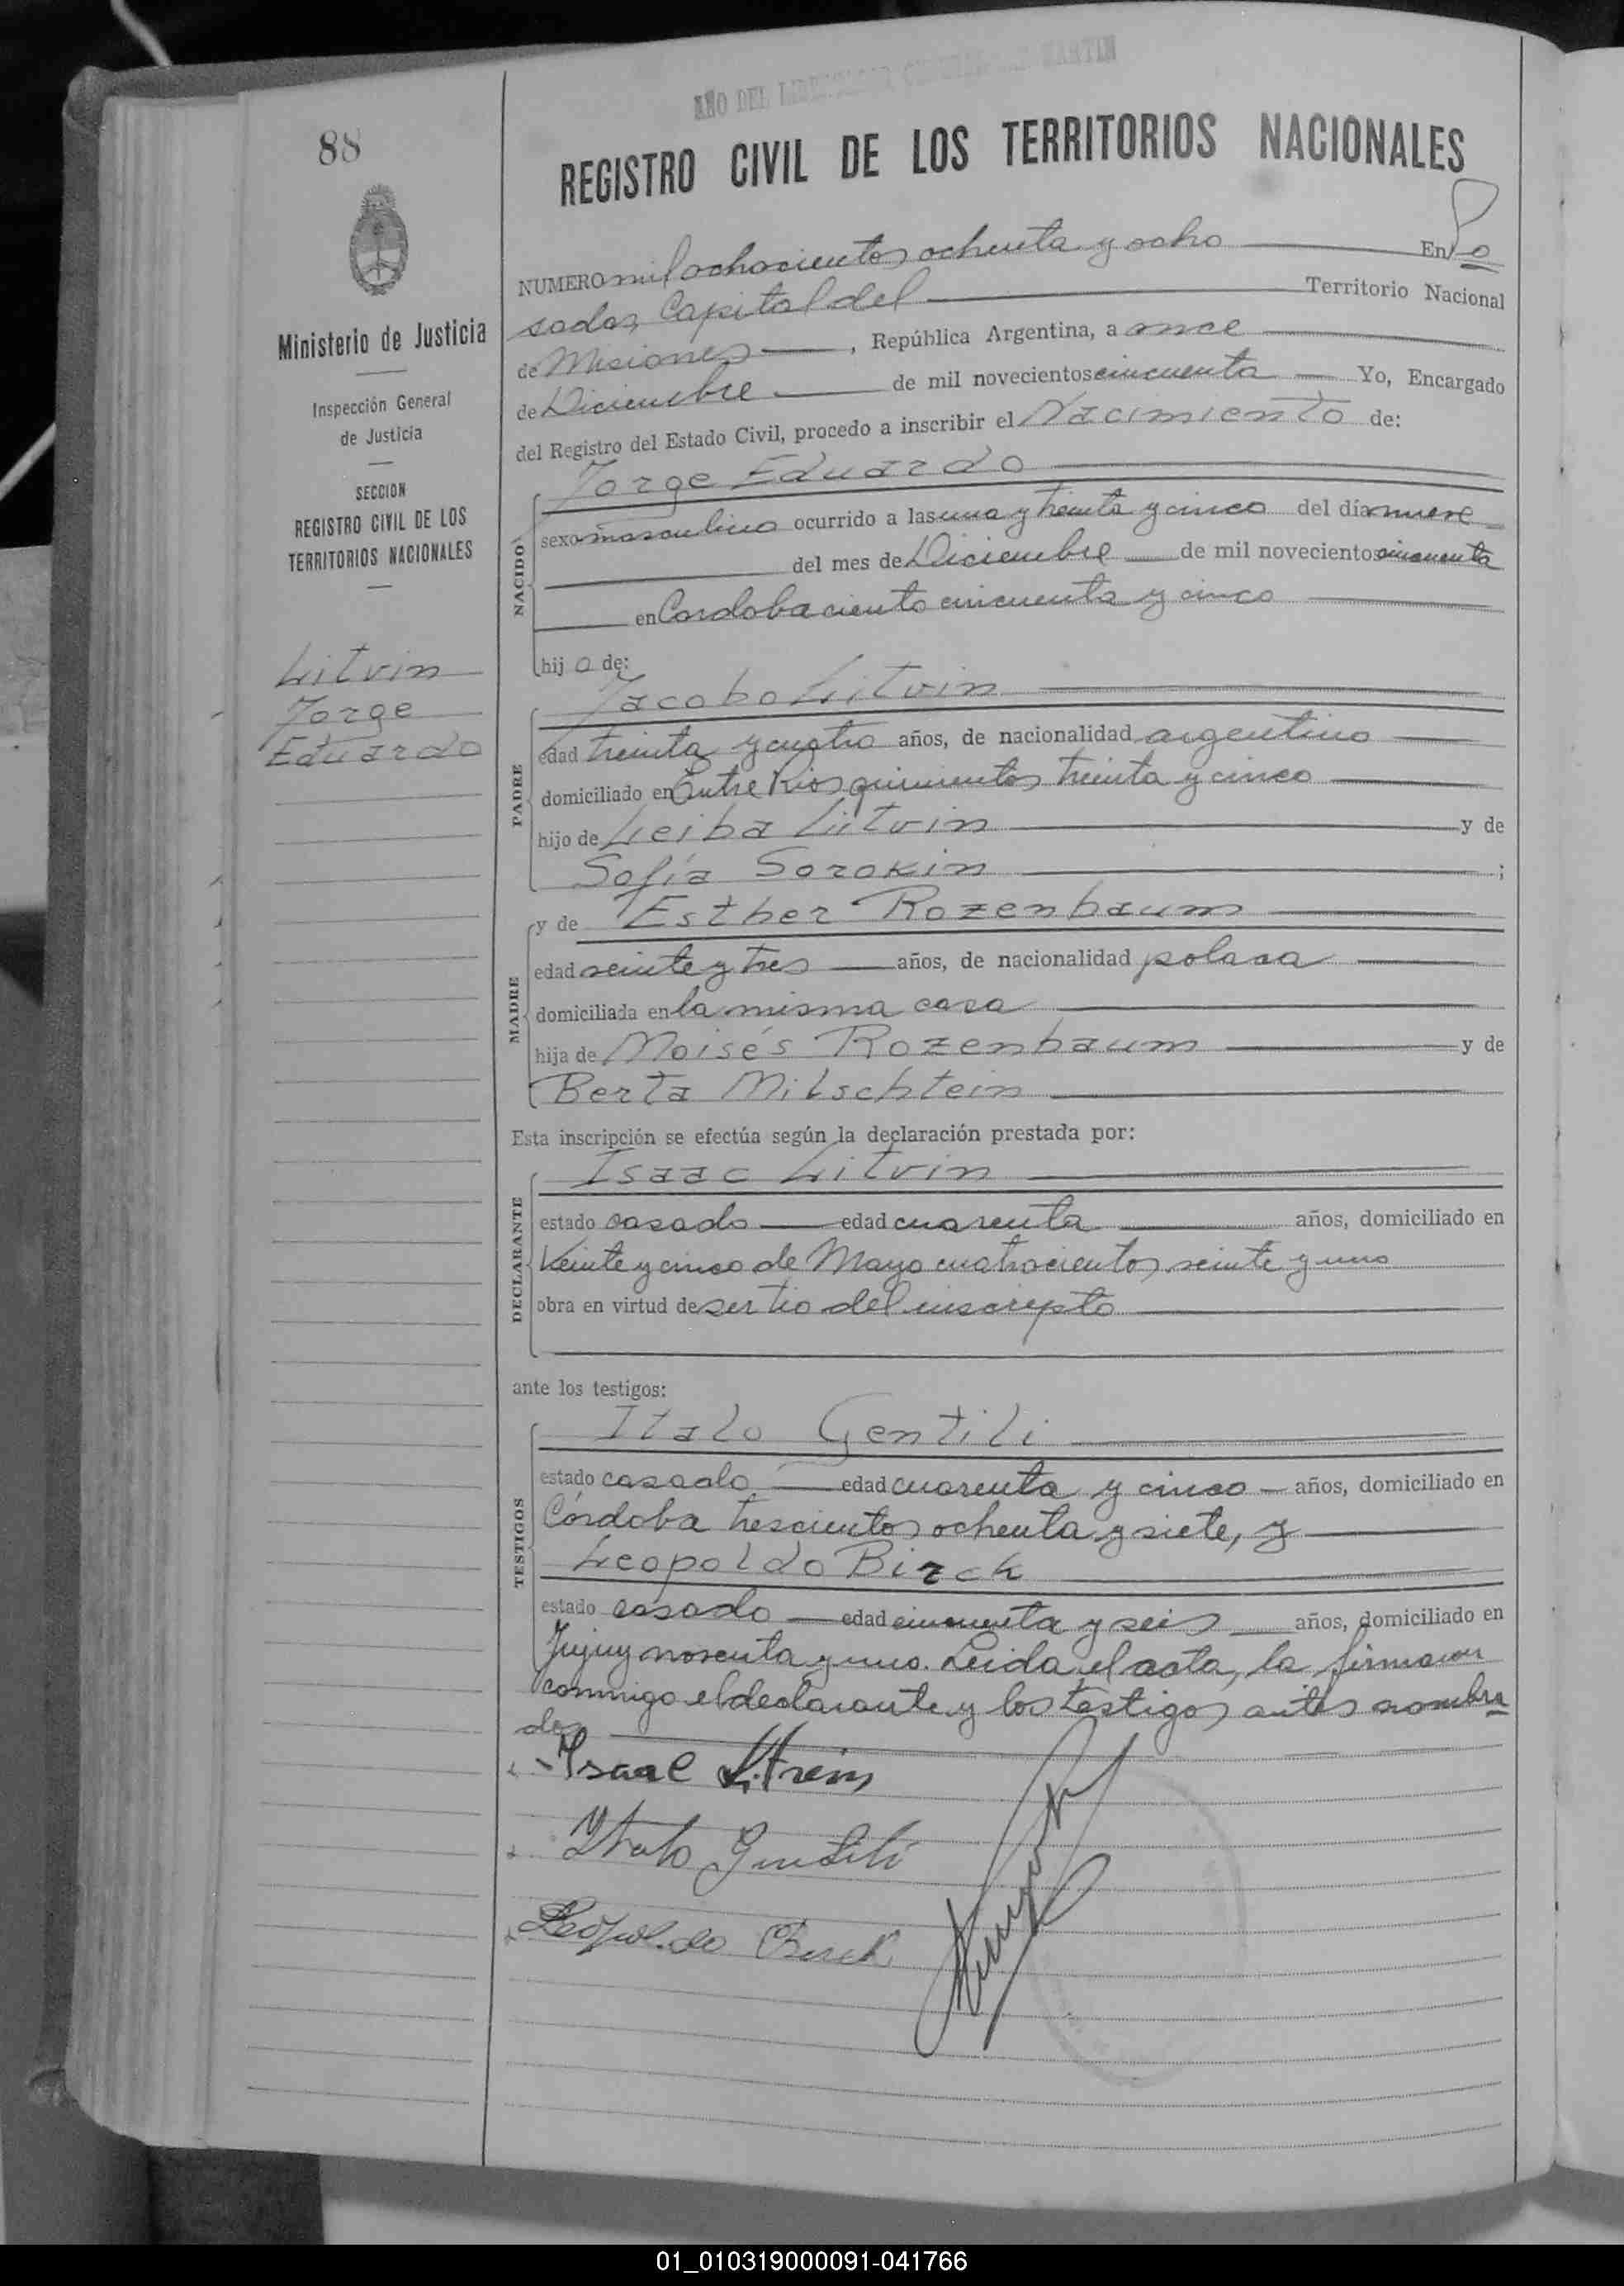 AÑO DEL LIBERTADOR GENERAL SAN MARTIN
88
REGISTRO CIVIL DE LOS TERRITORIOS NACIONALES
Ministerio de Justicia
Inspección General
de Justicia
SECCION
REGISTRO CIVIL DE LOS
TERRITORIOS NACIONALES
Litvin
Jorge
Eduardo
NUMERO mil ochocientos ochenta y ocho En Po
sadas, Capital del Territorio Nacional
de Misiones, República Argentina, a once
de Diciembre de mil novecientos cincuenta Yo, Encargado
del Registro del Estado Civil, procedo a inscribir el Nacimiento de:
Jorge Eduardo
NACIDO
sexo masculino ocurrido a las una y treinta y cinco del día nueve
del mes de Diciembre de mil novecientos cincuenta
en Cordoba ciento cincuenta y cinco
hij o de:
Jacobo Litvin
PADRE
edad treinta y cuatro años, de nacionalidad argentino
domiciliado en Entre Rios quinientos treinta y cinco
hijo de Leiba Litvin y de
Sofía Sorokin ;
MADRE
y de Esther Rozenbaum
edad veinte y tres años, de nacionalidad polaca
domiciliada en la misma casa
hija de Moisés Rozenbaum y de
Berta Milschtein
Esta inscripción se efectúa según la declaración prestada por:
Isaac Litvin
DECLARANTE
estado casado edad cuarenta años, domiciliado en
Veinte y cinco de Mayo cuatrocientos veinte y uno
obra en virtud de ser tio del inscripto
ante los testigos:
Italo Gentili
TESTIGOS
estado casado edad cuarenta y cinco años, domiciliado en
Córdoba trescientos ochenta y siete, y
Leopoldo Birck
estado casado edad cincuenta y seis años, domiciliado en
Jujuy noventa y uno. Leida el acta, la firmaron
conmigo el declarante y los testigos antes nombra
dos
Isaac Litvin
Italo Gentili
Leopoldo Birck
01_010319000091-041766